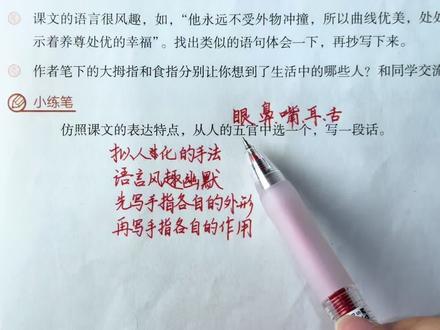 课文的语言很风趣，如，“他永远不受外物冲撞，所以曲线优美，处处
示着养尊处优的幸福”。找出类似的语句体会一下，再抄写下来。
作者笔下的大拇指和食指分别让你想到了生活中的哪些人？和同学交流
小练笔
眼、鼻、嘴、耳、舌
仿照课文的表达特点，从人的五官中选一个，写一段话。
拟人化的手法
语言风趣幽默
先写手指各自的外形
再写手指各自的作用